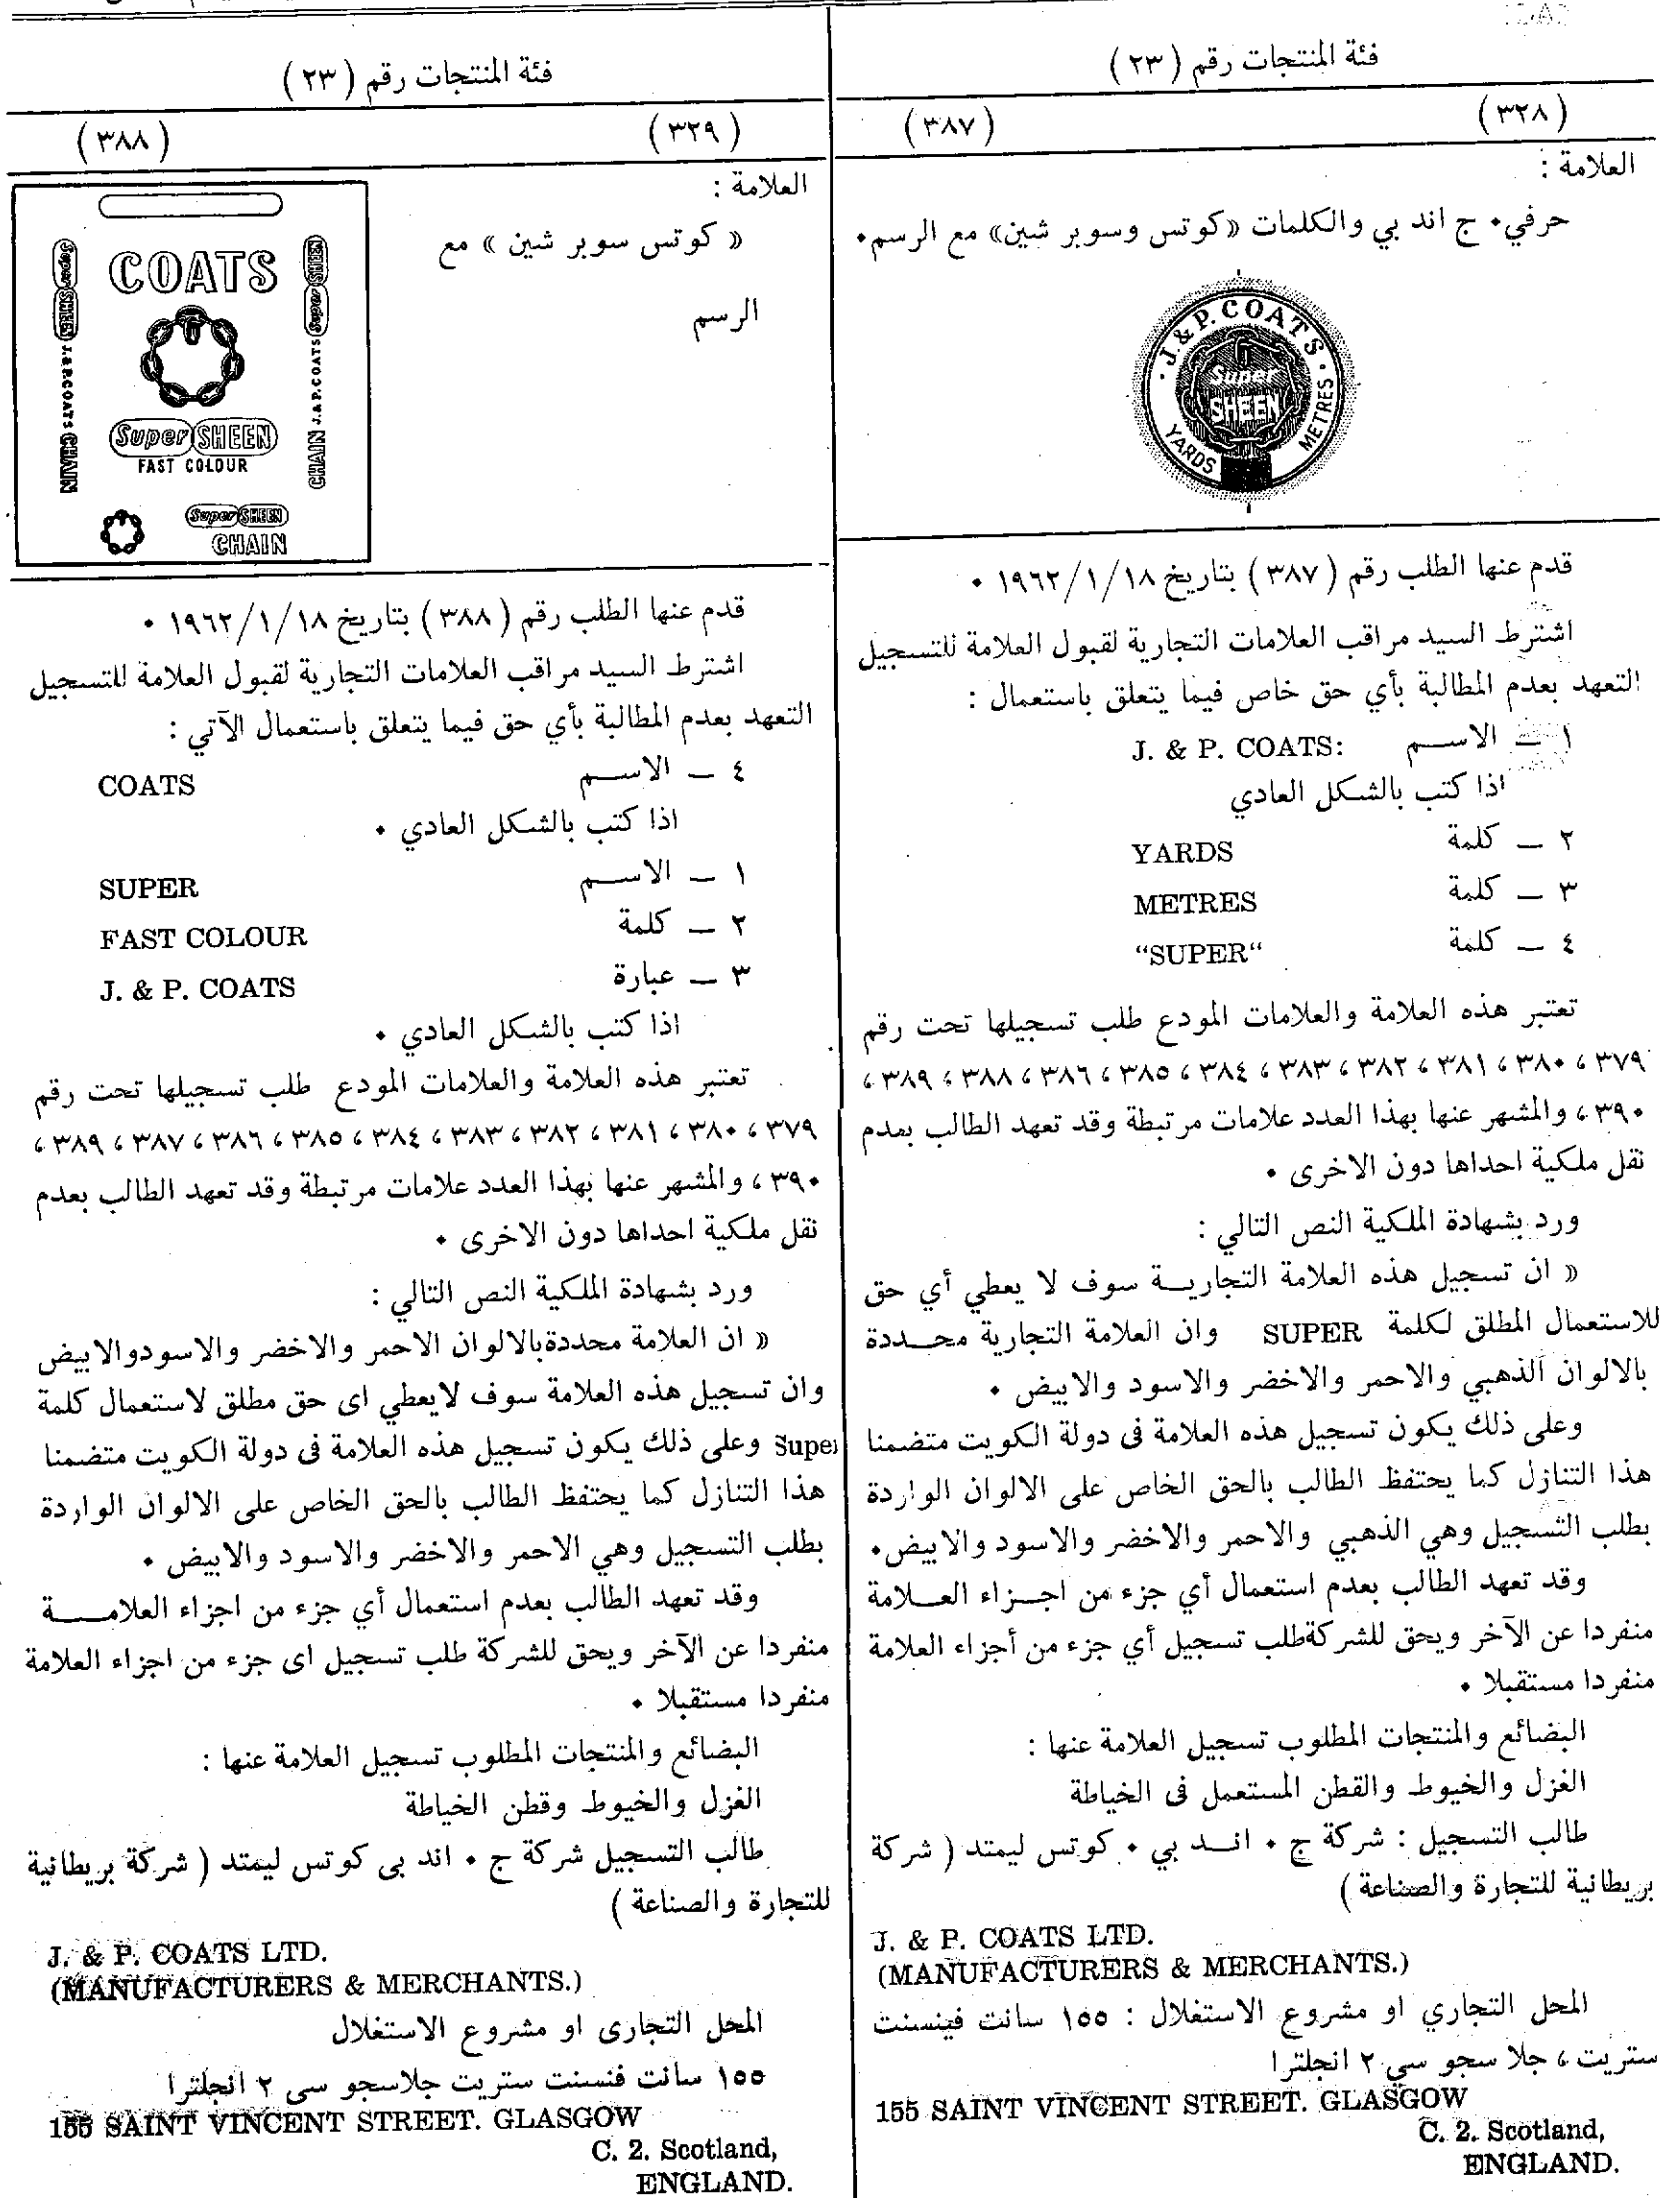 فئة المنتجات رقم ( ٢٣ )
( ٣٢٨ ) ( ٣٨٧ )
العلامة :
حرفي٠ ج اند بي والكلمات «كوتس وسوبر شين» مع الرسم٠
· J. & P. COATS ·
Super
SHEEN
YARDS METRES
قدم عنها الطلب رقم ( ٣٨٧ ) بتاريخ ١٨/ ١/ ١٩٦٢ ٠
اشترط السيد مراقب العلامات التجارية لقبول العلامة للتسجيل
التعهد بعدم المطالبة بأي حق خاص فيما يتعلق باستعمال :
١ ــ الاســم J. & P. COATS:
اذا كتب بالشكل العادي
٢ ــ كلمة YARDS
٣ ــ كلمة METRES
٤ ــ كلمة “SUPER“
تعتبر هذه العلامة والعلامات المودع طلب تسجيلها تحت رقم
٣٧٩ ، ٣٨٠ ، ٣٨١ ، ٣٨٢ ، ٣٨٣ ، ٣٨٤ ، ٣٨٥ ، ٣٨٦ ، ٣٨٨ ، ٣٨٩ ،
٣٩٠ ، والمشهر عنها بهذا العدد علامات مرتبطة وقد تعهد الطالب بعدم
نقل ملكية احداها دون الاخرى ٠
ورد بشهادة الملكية النص التالي :
« ان تسجيل هذه العلامة التجاريــة سوف لا يعطي أي حق
للاستعمال المطلق لكلمة SUPER وان العلامة التجارية محــددة
بالالوان الذهبي والاحمر والاخضر والاسود والابيض ٠
وعلى ذلك يكون تسجيل هذه العلامة فى دولة الكويت متضمنا
هذا التنازل كما يحتفظ الطالب بالحق الخاص على الالوان الواردة
بطلب التسجيل وهي الذهبي والاحمر والاخضر والاسود والابيض٠
وقد تعهد الطالب بعدم استعمال أي جزء من اجــزاء العــلامة
منفردا عن الآخر ويحق للشركةطلب تسجيل أي جزء من أجزاء العلامة
منفردا مستقبلا ٠
البضائع والمنتجات المطلوب تسجيل العلامة عنها :
الغزل والخيوط والقطن المستعمل فى الخياطة
طالب التسجيل : شركة ج ٠ انــد بي ٠ كوتس ليمتد ( شركة
بريطانية للتجارة والصناعة )
J. & P. COATS LTD.
(MANUFACTURERS & MERCHANTS.)
المحل التجاري او مشروع الاستغلال : ١٥٥ سانت فينسنت
ستريت ، جلا سجو سي ٢ انجلترا
155 SAINT VINCENT STREET. GLASGOW
C. 2. Scotland,
ENGLAND.
فئة المنتجات رقم ( ٢٣ )
( ٣٢٩ ) ( ٣٨٨ )
العلامة :
« كوتس سوبر شين » مع
الرسم
COATS
Super SHEEN
FAST COLOUR
Super SHEEN
CHAIN
Super SHEEN J. & P. COATS CHAIN
CHAIN J. & P. COATS Super SHEEN
قدم عنها الطلب رقم ( ٣٨٨ ) بتاريخ ١٨/ ١/ ١٩٦٢ ٠
اشترط السيد مراقب العلامات التجارية لقبول العلامة للتسجيل
التعهد بعدم المطالبة بأي حق فيما يتعلق باستعمال الآتي :
٤ ــ الاســم COATS
اذا كتب بالشكل العادي ٠
١ ــ الاســم SUPER
٢ ــ كلمة FAST COLOUR
٣ ــ عبارة J. & P. COATS
اذا كتب بالشكل العادي ٠
تعتبر هذه العلامة والعلامات المودع طلب تسجيلها تحت رقم
٣٧٩ ، ٣٨٠ ، ٣٨١ ، ٣٨٢ ، ٣٨٣ ، ٣٨٤ ، ٣٨٥ ، ٣٨٦ ، ٣٨٧ ، ٣٨٩ ،
٣٩٠ ، والمشهر عنها بهذا العدد علامات مرتبطة وقد تعهد الطالب بعدم
نقل ملكية احداها دون الاخرى ٠
ورد بشهادة الملكية النص التالي :
« ان العلامة محددةبالالوان الاحمر والاخضر والاسودوالابيض
وان تسجيل هذه العلامة سوف لايعطي اى حق مطلق لاستعمال كلمة
Super وعلى ذلك يكون تسجيل هذه العلامة فى دولة الكويت متضمنا
هذا التنازل كما يحتفظ الطالب بالحق الخاص على الالوان الواردة
بطلب التسجيل وهي الاحمر والاخضر والاسود والابيض ٠
وقد تعهد الطالب بعدم استعمال أي جزء من اجزاء العلامــة
منفردا عن الآخر ويحق للشركة طلب تسجيل اى جزء من اجزاء العلامة
منفردا مستقبلا ٠
البضائع والمنتجات المطلوب تسجيل العلامة عنها :
الغزل والخيوط وقطن الخياطة
طالب التسجيل شركة ج ٠ اند بى كوتس ليمتد ( شركة بريطانية
للتجارة والصناعة )
J. & P. COATS LTD.
(MANUFACTURERS & MERCHANTS.)
المحل التجارى او مشروع الاستغلال
١٥٥ سانت فنسنت ستريت جلاسجو سى ٢ انجلترا
155 SAINT VINCENT STREET. GLASGOW
C. 2. Scotland,
ENGLAND.